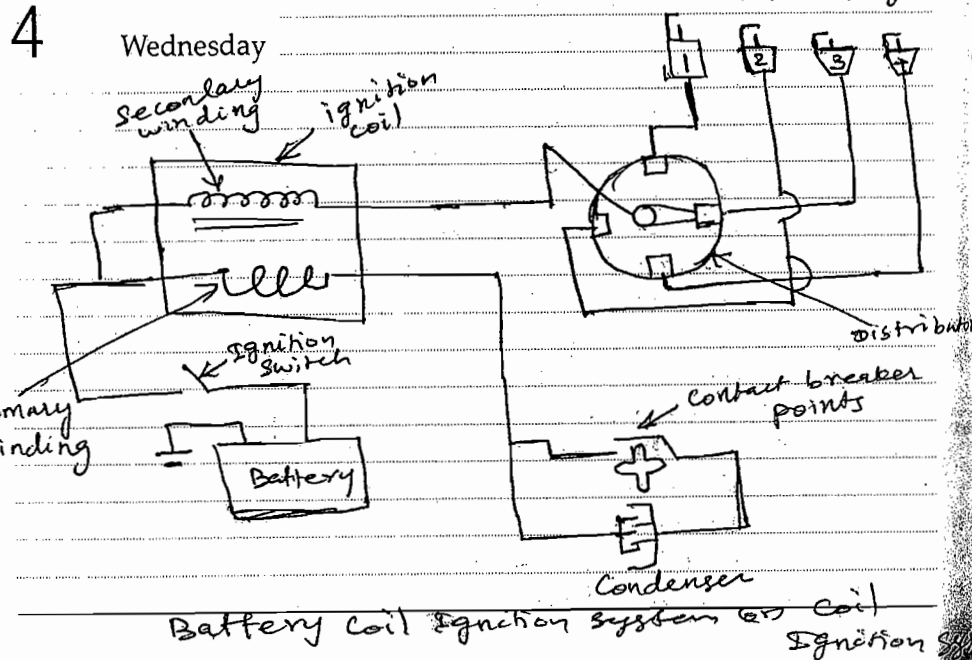 4
Wednesday
Secondary
winding
ignition
coil
1
2
3
4
Distributor
Ignition
Switch
mary
inding
Contact breaker
points
Battery
Condenser
Battery Coil Ignition System or Coil
Ignition Sy